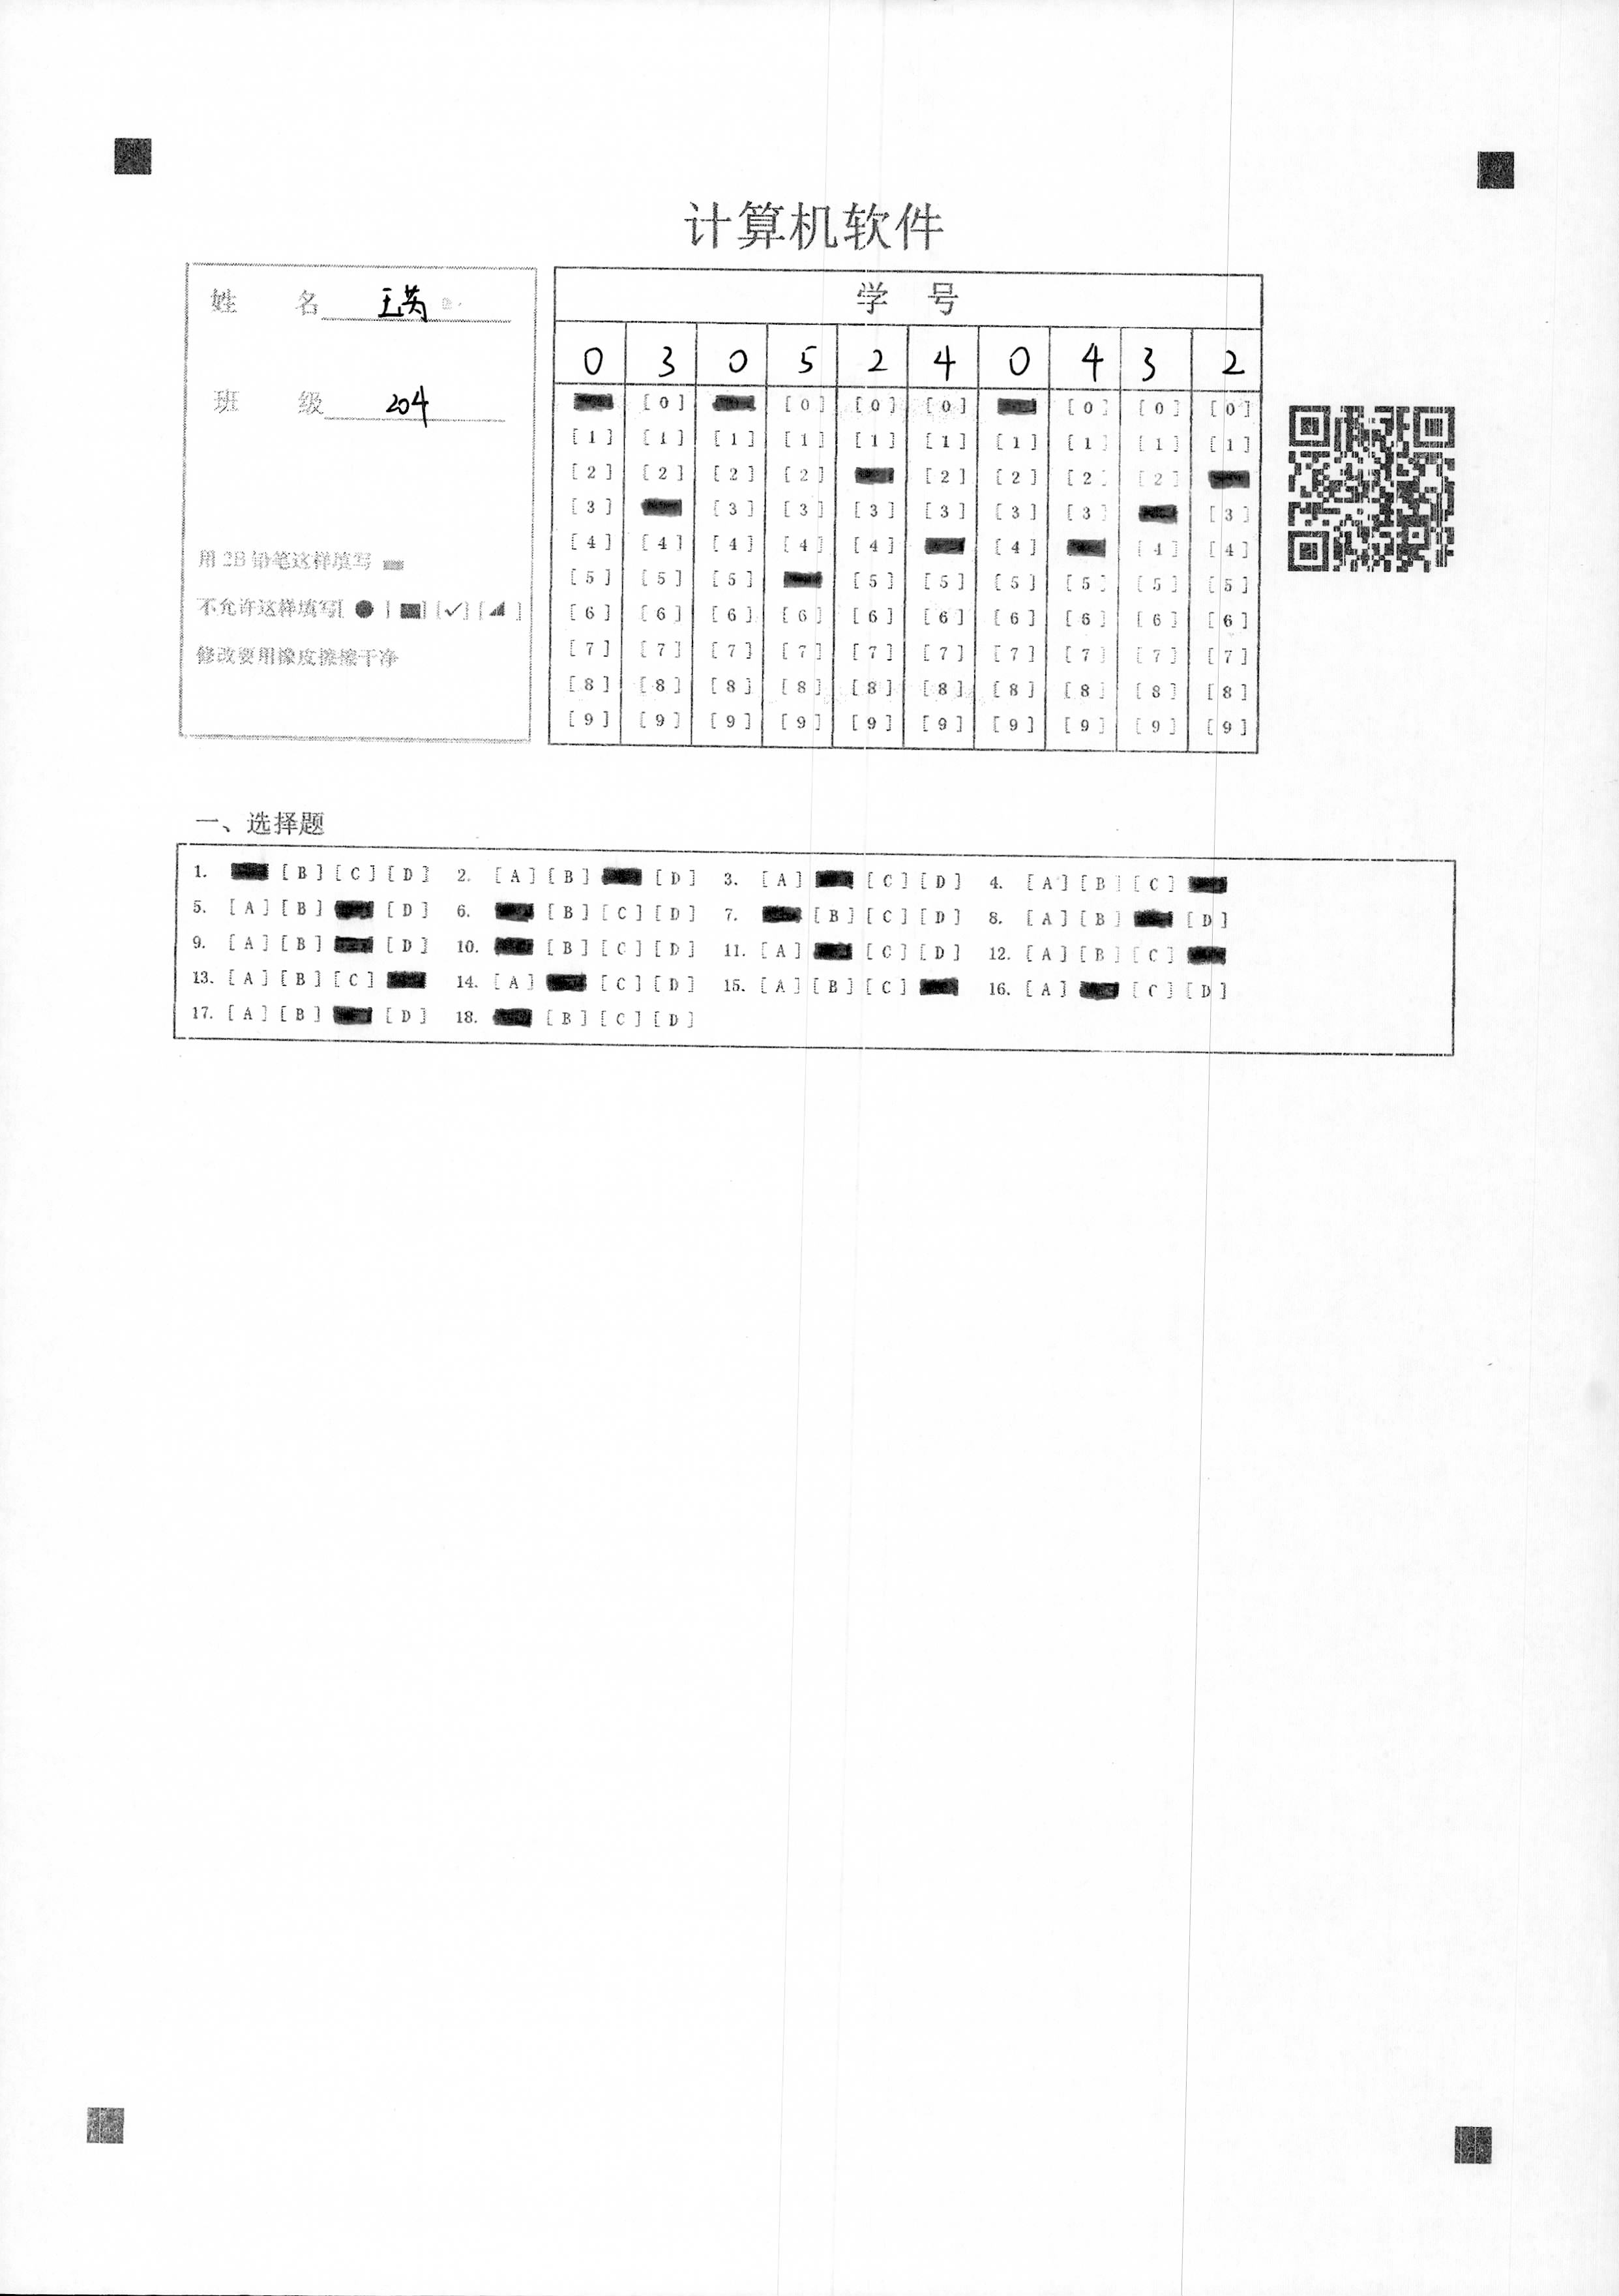 计算机软件
姓 名 王英
班 级 204
用2B铅笔这样填写
不允许这样填写[ ● ] [■] [✓] [◢ ]
修改要用橡皮擦擦干净
学 号
0 3 0 5 2 4 0 4 3 2
[0] [0] [0] [0] [0] [0] [0]
[1] [1] [1] [1] [1] [1] [1] [1] [1] [1]
[2] [2] [2] [2] [2] [2] [2] [2]
[3] [3] [3] [3] [3] [3] [3] [3]
[4] [4] [4] [4] [4] [4] [4] [4]
[5] [5] [5] [5] [5] [5] [5] [5] [5]
[6] [6] [6] [6] [6] [6] [6] [6] [6] [6]
[7] [7] [7] [7] [7] [7] [7] [7] [7] [7]
[8] [8] [8] [8] [8] [8] [8] [8] [8] [8]
[9] [9] [9] [9] [9] [9] [9] [9] [9] [9]
一、选择题
1. [B] [C] [D] 2. [A] [B] [D] 3. [A] [C] [D] 4. [A] [B] [C]
5. [A] [B] [D] 6. [B] [C] [D] 7. [B] [C] [D] 8. [A] [B] [D]
9. [A] [B] [D] 10. [B] [C] [D] 11. [A] [C] [D] 12. [A] [B] [C]
13. [A] [B] [C] 14. [A] [C] [D] 15. [A] [B] [C] 16. [A] [C] [D]
17. [A] [B] [D] 18. [B] [C] [D]